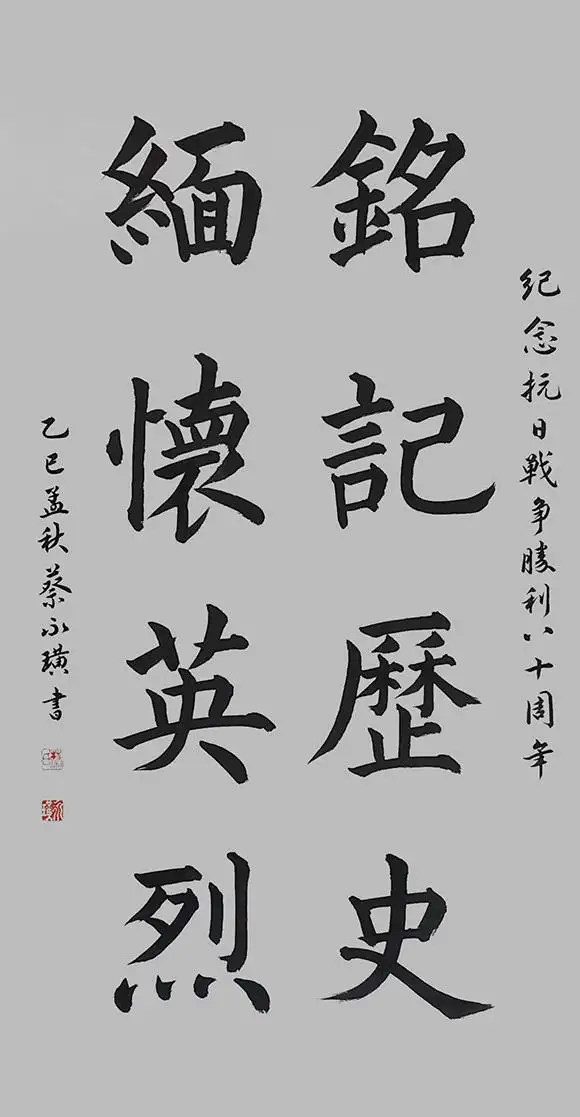 紀念抗日戰争勝利八十周年
銘記歷史
緬懷英烈
乙巳孟秋蔡永璜書